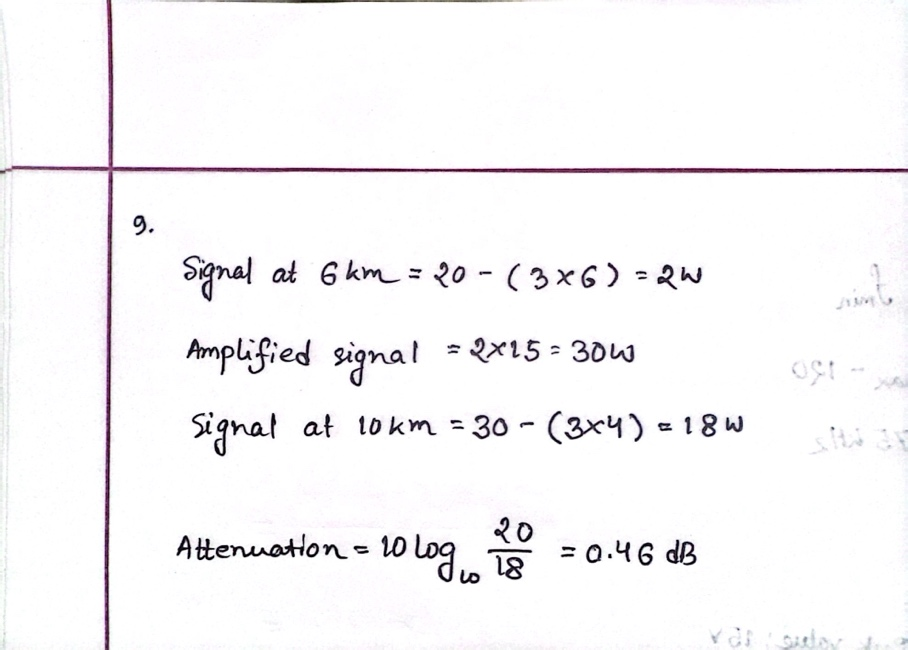 9.
Signal at 6 km = 20 - (3×6) = 2W
Amplified signal = 2×15 = 30W
Signal at 10 km = 30 - (3×4) = 18 W
Attenuation = 10 log₁₀ 20/18 = 0.46 dB